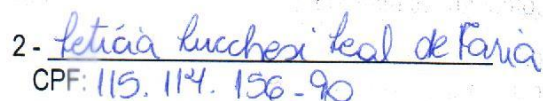 2- Letícia Lucchesi Leal de Faria
CPF: 115.114.156-90